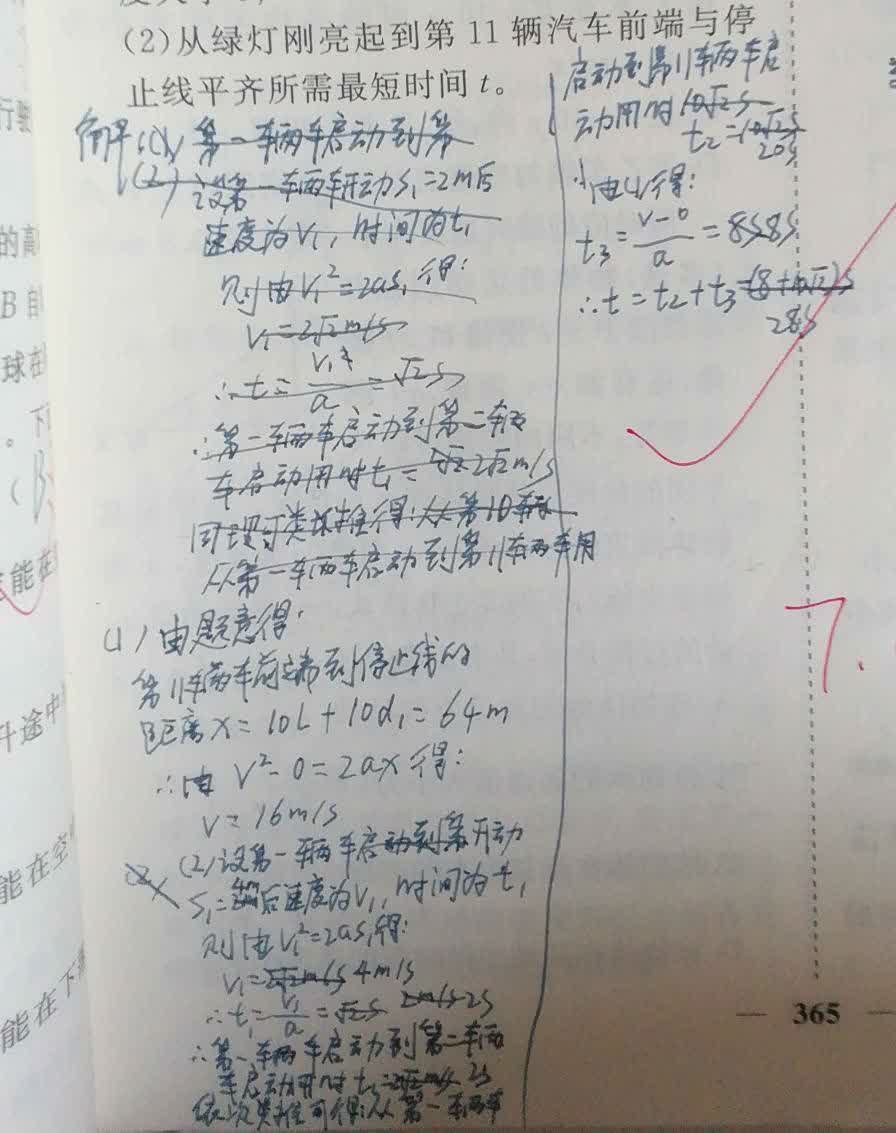 (2)从绿灯刚亮起到第 11 辆汽车前端与停
止线平齐所需最短时间 t。
(1) 第一车辆车启动到第
(2) 设第一车辆车开动S₁=2m后
速度为V₁,时间为t₁
则由V₁²=2as₁得:
V₁=2√2m/s
∴t=V₁/a=√2s
∴第一车辆车启动到第二车辆
车启动用时t₁=2√2m/s
同理可类推得:从第10车辆
从第一车辆车启动到第11车辆车用
(1)由题意得:
第11车辆车前端到停止线的
距离x=10L+10d₁=64m
∴由 V²-0=2ax得:
V=16m/s
(2)设第一车辆车启动到第开动
S₁=后速度为V₁,时间为t₁
则由V₁²=2as₁得:
V₁=2√2m/s 4m/s
∴t₁=V₁/a=√2s 2m/s 2s
∴第一车辆车启动到第二车辆
车启动用时t₁=2√2m/s 2s
依次类推可得:从第一车辆车
启动到第11车辆车启
动用时10√2s
t₂=10√2s
20s
由(1)得:
t₃=(V-0)/a=8s8s
∴t=t₂+t₃=(8+10√2)s
28s
7.
365